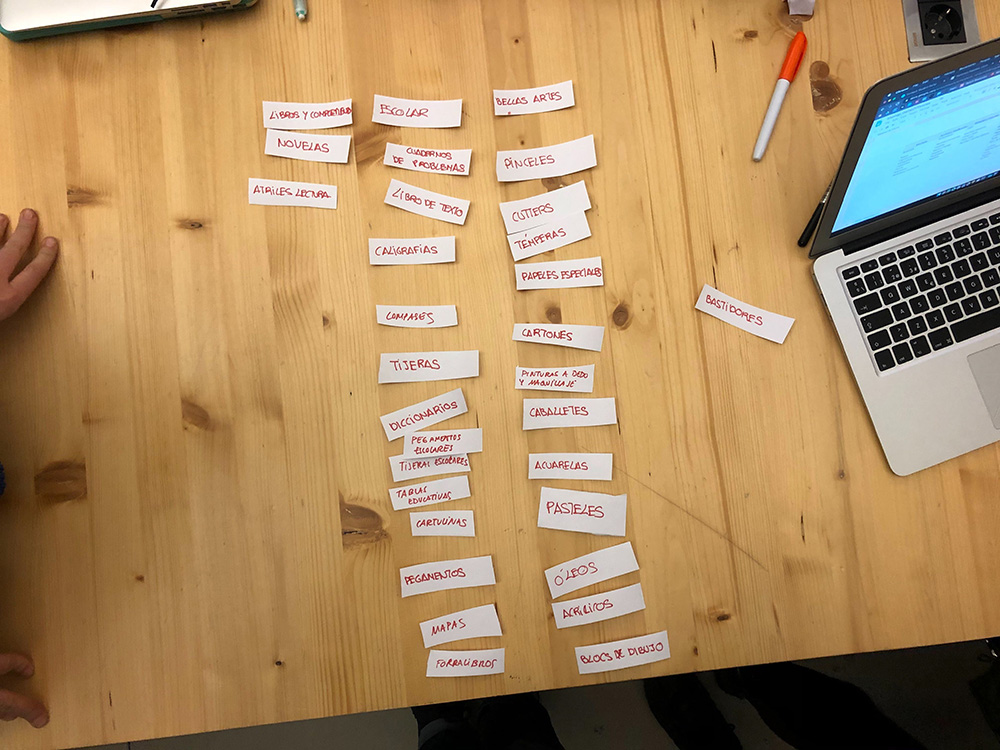 LIBROS Y COMPLEMENTOS
NOVELAS
ATRILES LECTURA
ESCOLAR
CUADERNOS
DE PROBLEMAS
LIBRO DE TEXTO
CALIGRAFÍAS
COMPASES
TIJERAS
DICCIONARIOS
PEGAMENTOS
ESCOLARES
TIJERAS ESCOLARES
TABLAS
EDUCATIVAS
CARTULINAS
PEGAMENTOS
MAPAS
FORRALIBROS
BELLAS ARTES
PINCELES
CUTTERS
TÉMPERAS
PAPELES ESPECIALES
CARTONES
PINTURAS A DEDO
Y MAQUILLAJE
CABALLETES
ACUARELAS
PASTELES
ÓLEOS
ACRÍLICOS
BLOCS DE DIBUJO
BASTIDORES